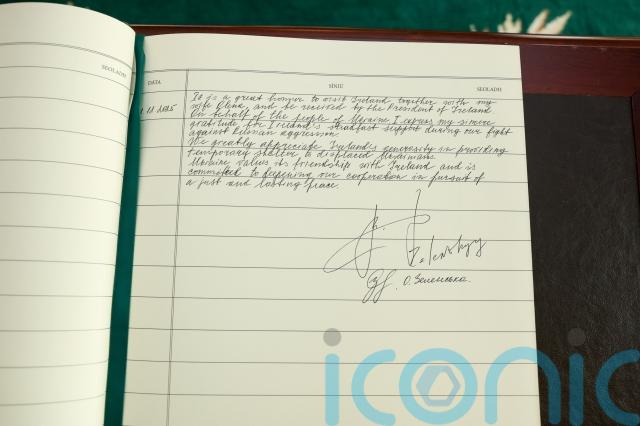 SEOLADH
DATA SÍNIÚ SEOLADH
It is a great honor to visit Ireland, together with my
wife Olena, and be received by the President of Ireland.
On behalf of the people of Ukraine I express my sincere
gratitude for Ireland's steadfast support during our fight
against Russian aggression.
We greatly appreciate Ireland's generosity in providing
temporary shelter to displaced Ukrainians.
Ukraine values its friendship with Ireland and is
committed to deepening our cooperation in pursuit of
a just and lasting peace.
Zelenskyy
О. Зеленська.
iconic